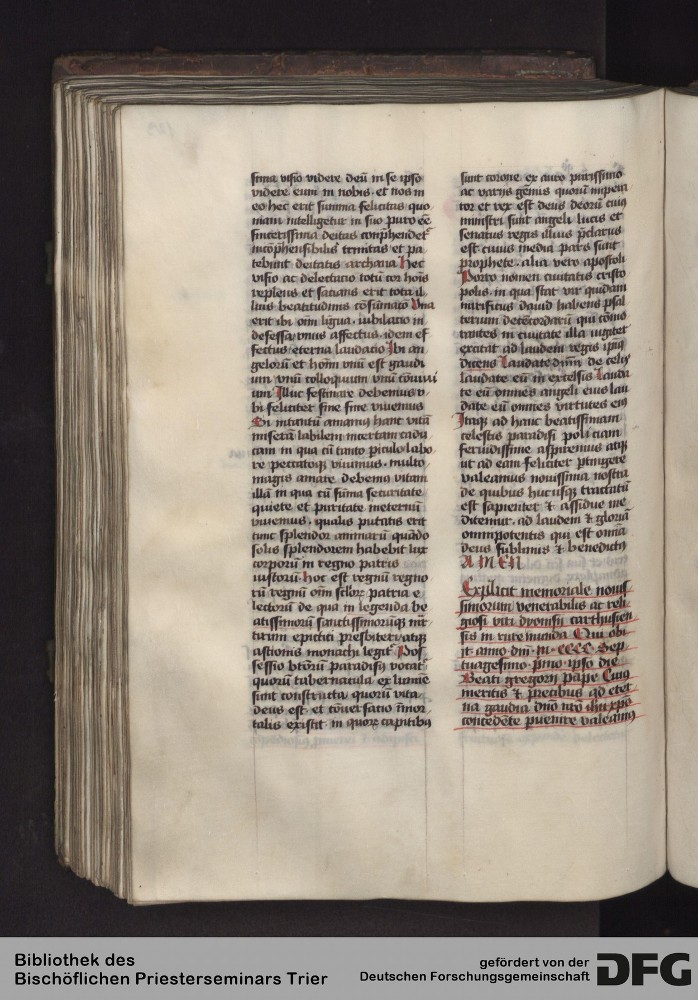 sima visio videre deū in se ipso
videre eum in nobis. et nos in
eo hec erit summa felicitas quo
niam intelligetur in suo puro eē
sincerissima deitas conphendet᷒
incōphensibilis trinitas et pa
tebunt deitatis archana Hec
visio ac delectatio totū cor hoīs
replens et sacians erit tota il
lius beatitudinis cōsumatō Vna
erit ibi oīm ligua. iubilatio in
defessa. vnus affectus. idem ef
fectus. eterna laudacio Ibi an
geloru et hoīm vnū est gaudi
um vnū colloquium vnū cōuiui
um Illuc festinare debemus v
bi feliciter sine fine viuemus
En intantū amamus hanc vitā
miserā labilem incertam cadu
cam in qua cū tanto piculo labo
re peccatoqȝ viuimus. multo
magis amare debemꝰ vitam
illā in qua cū sūma securitate
quiete et puritate meternū
viuemus. qualis putatis erit
tunc splendor animarū quādo
solis splendorem habebit lux
corporū in regno patris
iustorū. Hoc est regnū regno
rū regnū oīm sctōrꝝ patria e
lectorū de qua in legenda be
atissimorū sanctissimoruqȝ mr̄
tirum epicteti presbiteri atqȝ
astionis monachi legit᷒ Pos
sessio btōrū paradisus vocat᷒
quorū tabernacula ex lumine
sunt constructa quorū vita
deus est et cōuersatio īmor
talis existit in quorꝝ capitibꝰ
sunt corone ex auro purissimo
ac varijs gēmis quorū impera
tor et rex est deus deorū cuiꝰ
ministri sunt angeli lucis et
senatus regis illius pclarus
est cuius media pars sunt
prophete. alia vero apostoli
Porro nomen ciuitatis cristo
polis. in qua stat vir quidam
mirificus dauid habens psal
terium decēcordarū qui cōmo
rantes in ciuitate illa iugiter
excitat ad laudem regis ipiꝰ
dicens Laudate dnm de celis
laudate eū in excelsis Lauda
te eū omnes angeli eius lau
date eū omnes virtutes eiꝰ
Itaqȝ ad hanc beatissimam
celestis paradisi policiam
feruidissime aspiremus atqȝ
ut ad eam feliciter ptingere
valeamus nouissima nostra
de quibus huc usqȝ tractatū
est sapienter & assidue me
ditemur. ad laudem & gloriā
omnipotentis qui est omnia
deus sublimis & benedictꝰ
AMEN
Explicit memoriale nouis
simorum venerabilis ac reli
giosi viri dyonisij carthusien
sis in rure munda Qui obi
it anno dnī .M. CCCC. Sep
tuagesimo. pmo ipso die
Beati gregorij pape Cuiꝰ
meritis & precibus ad eter
na gaudia dnō nrō ihū xpō
concedēte puenire valeamꝰ
Bibliothek des
Bischöflichen Priesterseminars Trier
gefördert von der
Deutschen Forschungsgemeinschaft
DFG